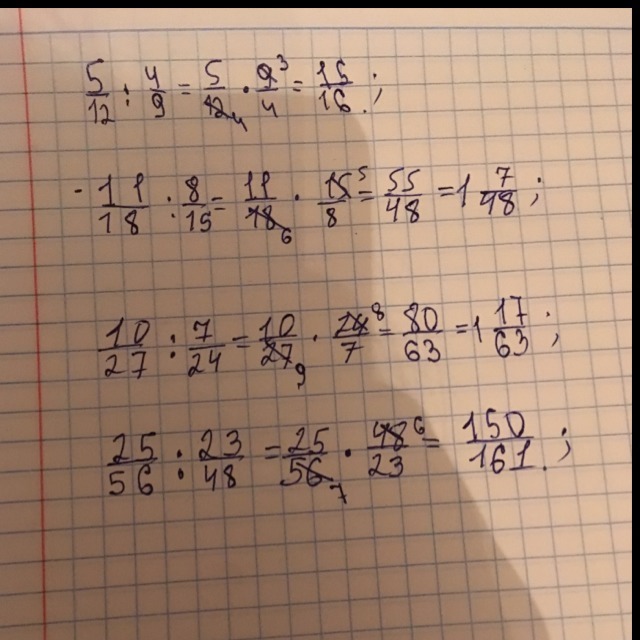 5/12 : 4/9 = 5/12 4 · 9 3/4 = 15/16;
- 11/18 : 8/15 = 11/18 6 · 15 5/8 = 55/48 = 1 7/48;
10/27 : 7/24 = 10/27 9 · 24 8/7 = 80/63 = 1 17/63;
25/56 : 23/48 = 25/56 7 · 48 6/23 = 150/161;